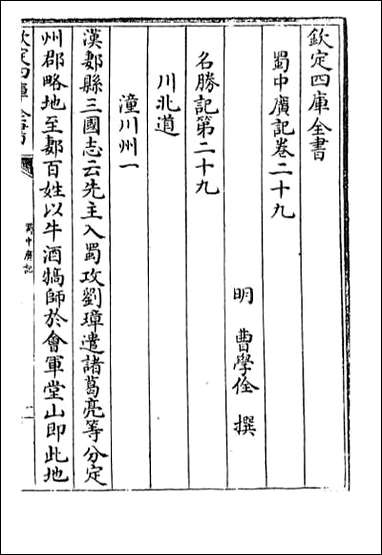 欽定四庫全書
蜀中廣記卷二十九
明 曹學佺 撰
名勝記第二十九
川北道
潼川州一
漢郪縣三國志云先主入蜀攻劉璋遣諸葛亮等分定
州郡略地至郪百姓以牛酒犒師於會軍堂山即此地
欽定四庫全書
蜀中廣記